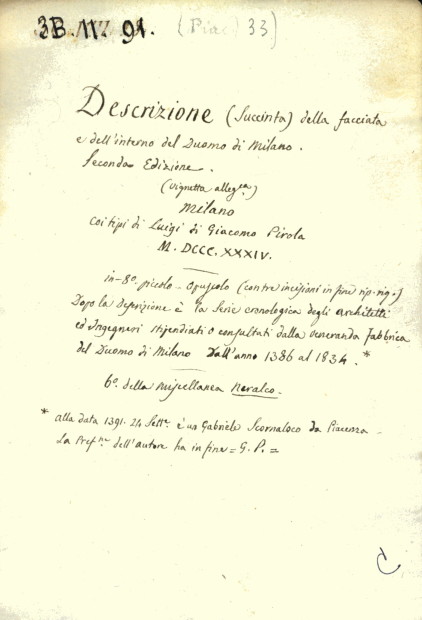 3B. MZ 91. (Piac 33)
Descrizione (Succinta) della facciata
e dell'interno del Duomo di Milano.
Seconda Edizione.
(vignetta alleg.ca)
Milano
coi tipi di Luigi di Giacomo Pirola
M. DCCC. XXXIV.
in-8º piccolo - Opuscolo (con tre incisioni in fine rip. rig.)
Dopo la Descrizione è la Serie cronologica degli architetti
ed Ingegneri stipendiati o consultati dalla veneranda Fabbrica
del Duomo di Milano Dall'anno 1386 al 1834. *
6º. della Miscellanea
* alla data 1391. 24 Sett.e è un Gabriele Scornaloco da Piacenza -
La Pref.ne dell'autore ha in fine = G. P. =